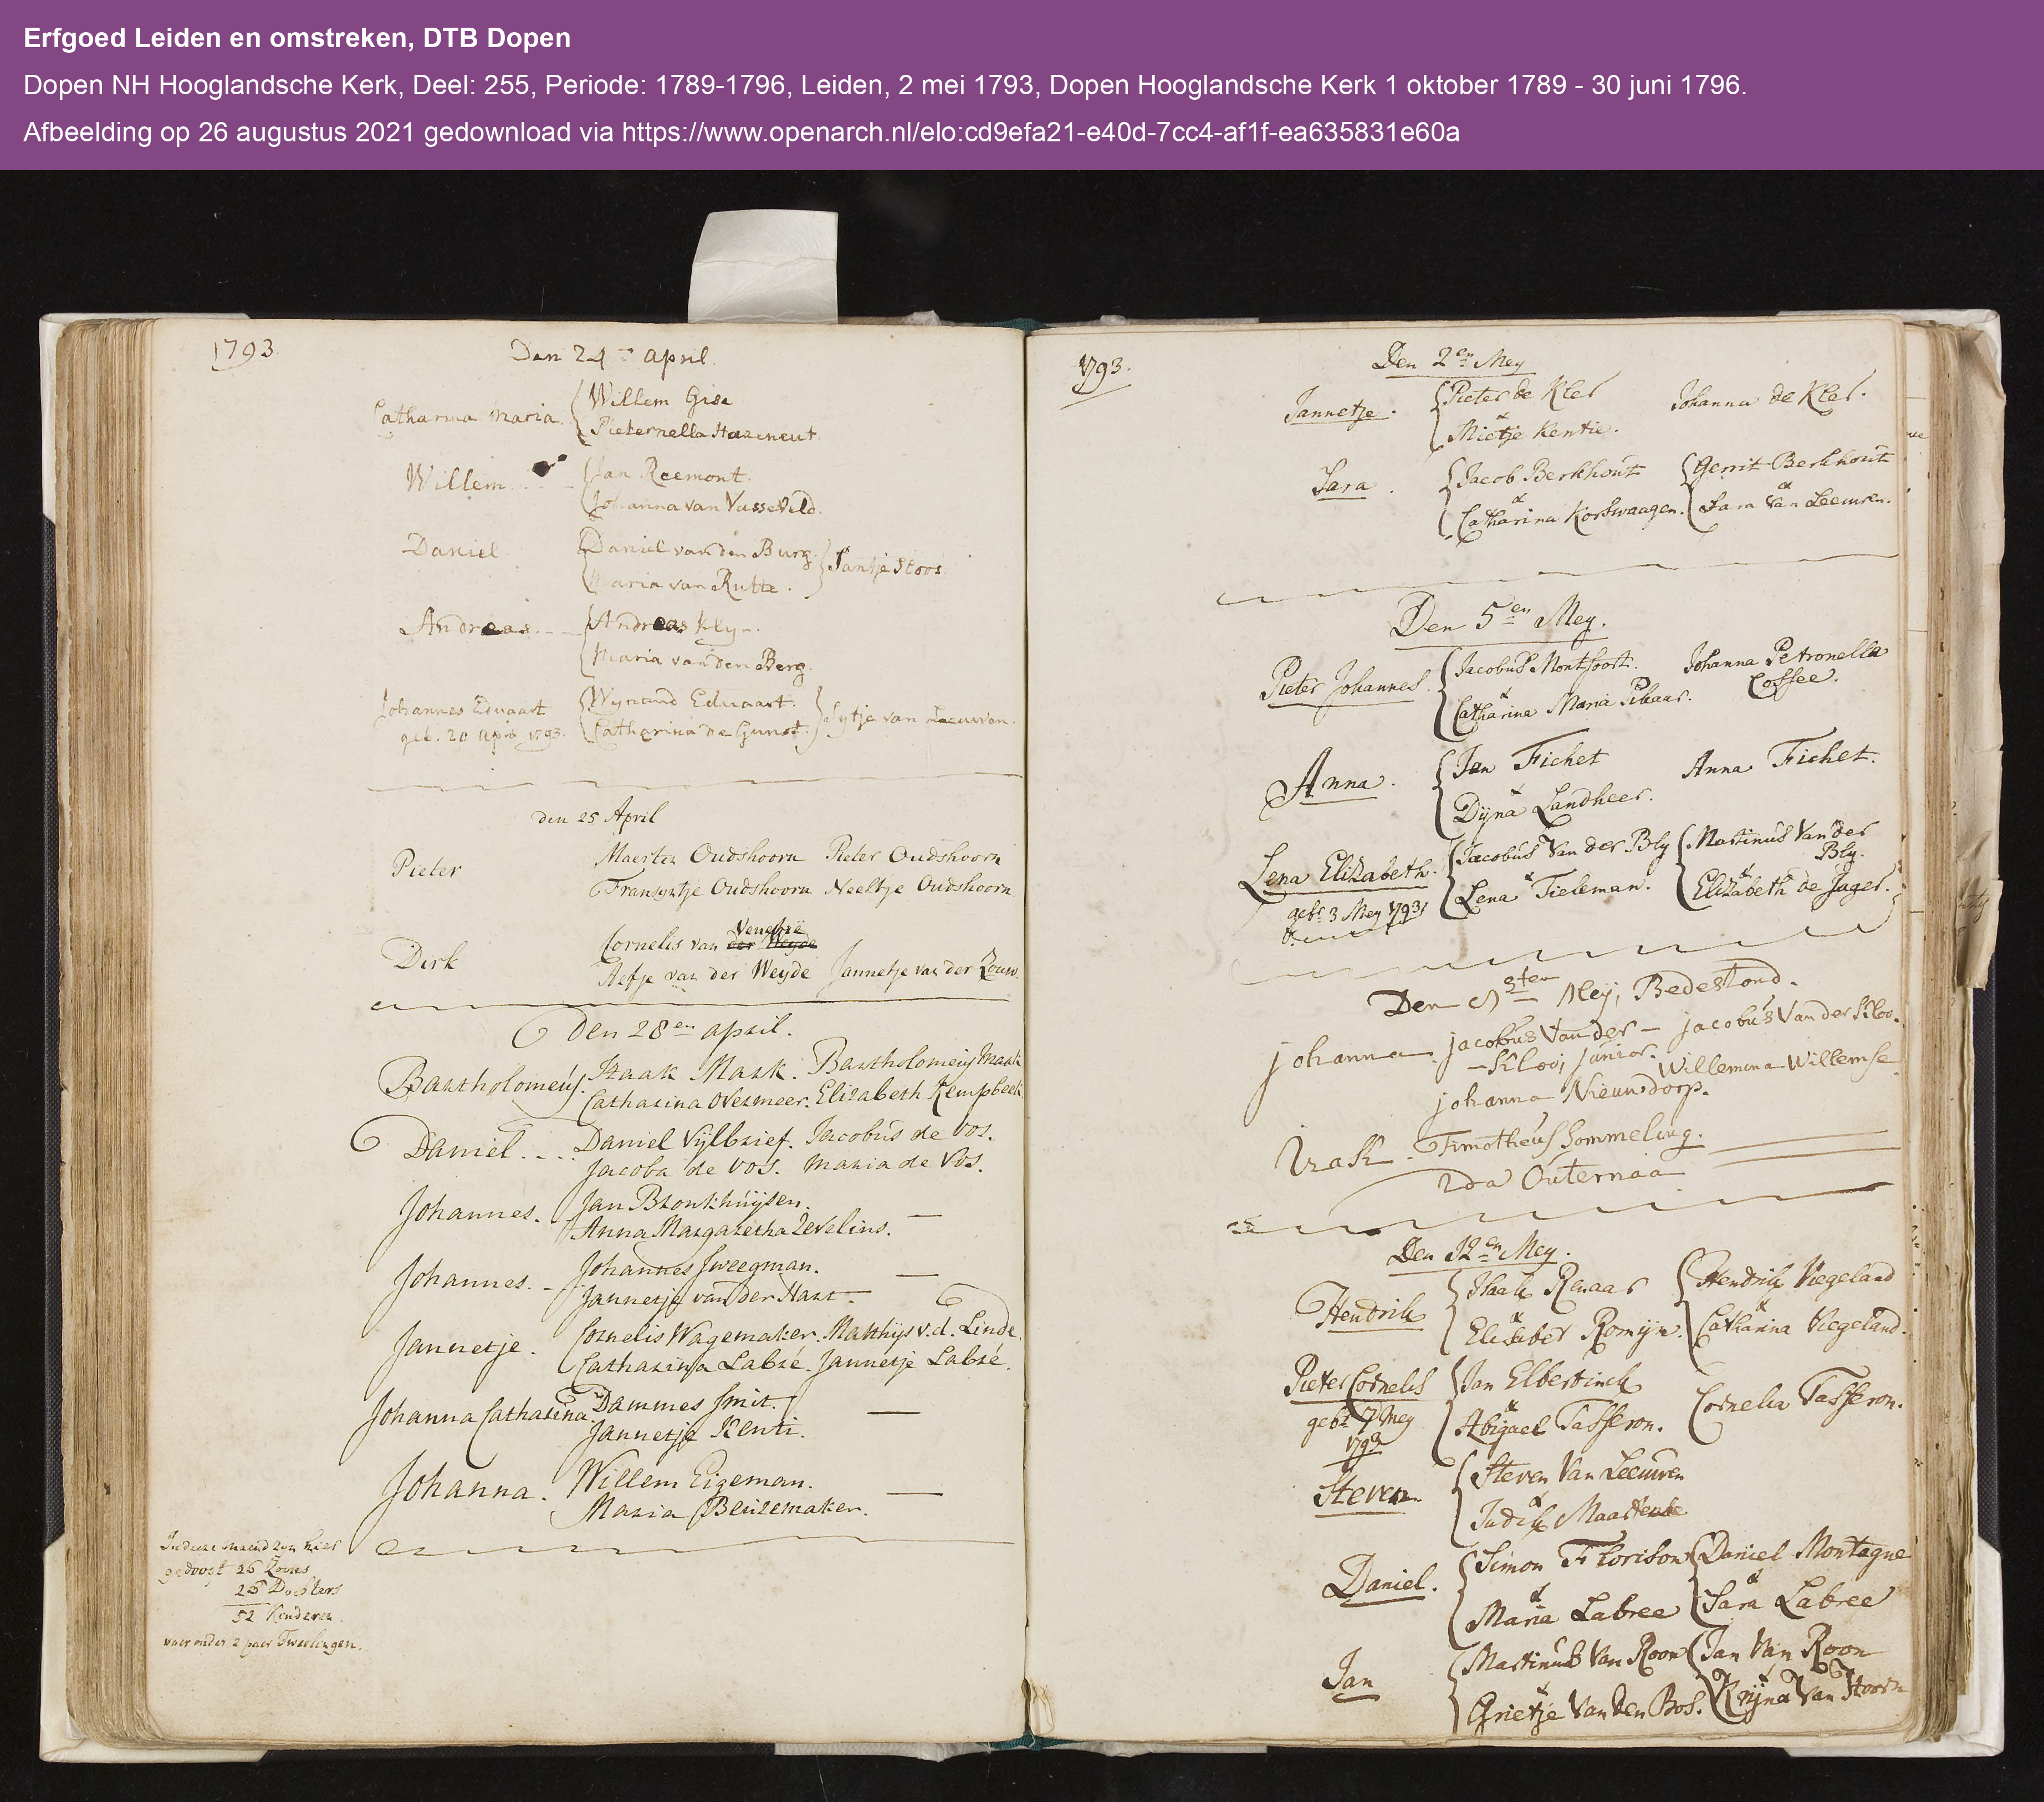 Erfgoed Leiden en omstreken, DTB Dopen
Dopen NH Hooglandsche Kerk, Deel: 255, Periode: 1789-1796, Leiden, 2 mei 1793, Dopen Hooglandsche Kerk 1 oktober 1789 - 30 juni 1796.
Afbeelding op 26 augustus 2021 gedownload via https://www.openarch.nl/elo:cd9efa21-e40d-7cc4-af1f-ea635831e60a
1793
Den 24 april
Catharina Maria Willem Gise
Pieternella
Willem Jan Reemont.
Johanna van
Daniel Daniel van den Burg. Santje Stoos
Maria van Rutte.
Andreas Andreas Kly
Maria van den Berg.
Johannes Eduaart Wynand Eduaart. Sytje van Leeuwen.
geb. 20 April 1793. Catharina de Gunst.
den 25 April
Pieter Maerten Oudshoorn Pieter Oudshoorn
Fransyntje Oudshoorn Neeltje Oudshoorn
Venetië
Dirk Cornelis van der Weyde
Aefje van der Weyde Jannetje van der Zouw.
Den 28en april.
Bartholomeus. Izaak Mark. Bartholomeus
Catharina Overmeer. Elizabeth Kempbeek
Daniel... Daniel Vijlbrief. Jacobus de Vos.
Jacoba de Vos. Maria de Vos.
Johannes. Jan Bronkhuijsen. —
Anna Margaretha Zevelins.
Johannes. - Johannes Sweegman. —
Jannetje van der Hart.
Jannetje. Cornelis Wagemaker. Matthijs v.d. Linde.
Catharina Labré. Jannetje Labré.
Johanna Catharina Dammes Smit. —
Jannetje Kenti.
Johanna. Willem Eigeman. —
Maria Beuzemaker.
In deeze maend zyn hier
gedoopt 26 Zoons
26 Dochters
52 Kinderen
waer onder 2 paer Tweelingen.
1793.
Den 2en Mey
Jannetje. Pieter de Kler Johanna de Kler.
& Mietje Kentie.
Sara. Jacob Berkhout Gerrit Berkhout
& Catharina Korswaagen. & Sara Van Leeuwen.
Den 5en Mey.
Pieter Johannes Jacobus Montfoort. Johanna Petronella
& Catharina Maria Pilaar. Coffee.
Anna. Jan Fichet Anna Fichet.
& Dyna Landheer.
Lena Elizabeth. Jacobus Van der Bly Martinus Van der
Bly.
gebr 3 Mey 1793 & Lena Tieleman. & Elizabeth de Jager.
Den 8sten Mey, Bedestond.
Johanna. jacobus Van der – jacobus Van der Kloo.
– Klooi junior. Willemina Willemse
johanna Nieuwdorp.
Izaak. Timotheus Sommeling.
Ida Outernaa
Den 12en Mey.
Hendrik Isaak Renaar Hendrik Viegeland
& Elisabet Romijn. & Catharina Viegeland.
Pieter Cornelis Jan Elbertinck Cornelia Tasseron.
gebr 7 Mey & Abigael Tasseron.
1793
Steven Steven Van Leeuwen
& Judik Maartense
Daniel. Simon Florison Daniel Montagne
& Maria Labree & Sara Labree
Jan Martinus Van Roon Jan Van Roon
& Grietje Van den Bos. & Krijna Van Hoorn